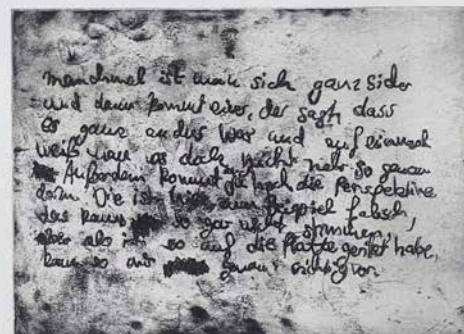 manchmal ist man sich ganz sicher
und dann kommt einer, der sagt dass
es ganz anders war und auf einmal
weiß man es doch nicht mehr so genau
Außerdem kommt ja noch die Perspektive
dazu. Die ist hier zum Beispiel falsch,
das kann so gar nicht stimmen,
aber als ich so auf die Platte geritzt habe,
kam es mir genau richtig vor